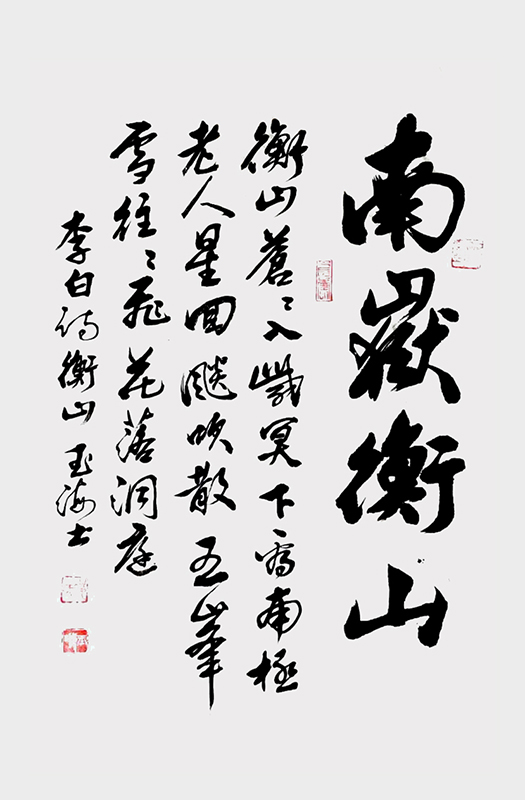 南嶽衡山
衡山蒼〻入紫冥下看南極
老人星回飈吹散五峯
雪往〻飛花落洞庭
李白詩衡山 玉海士